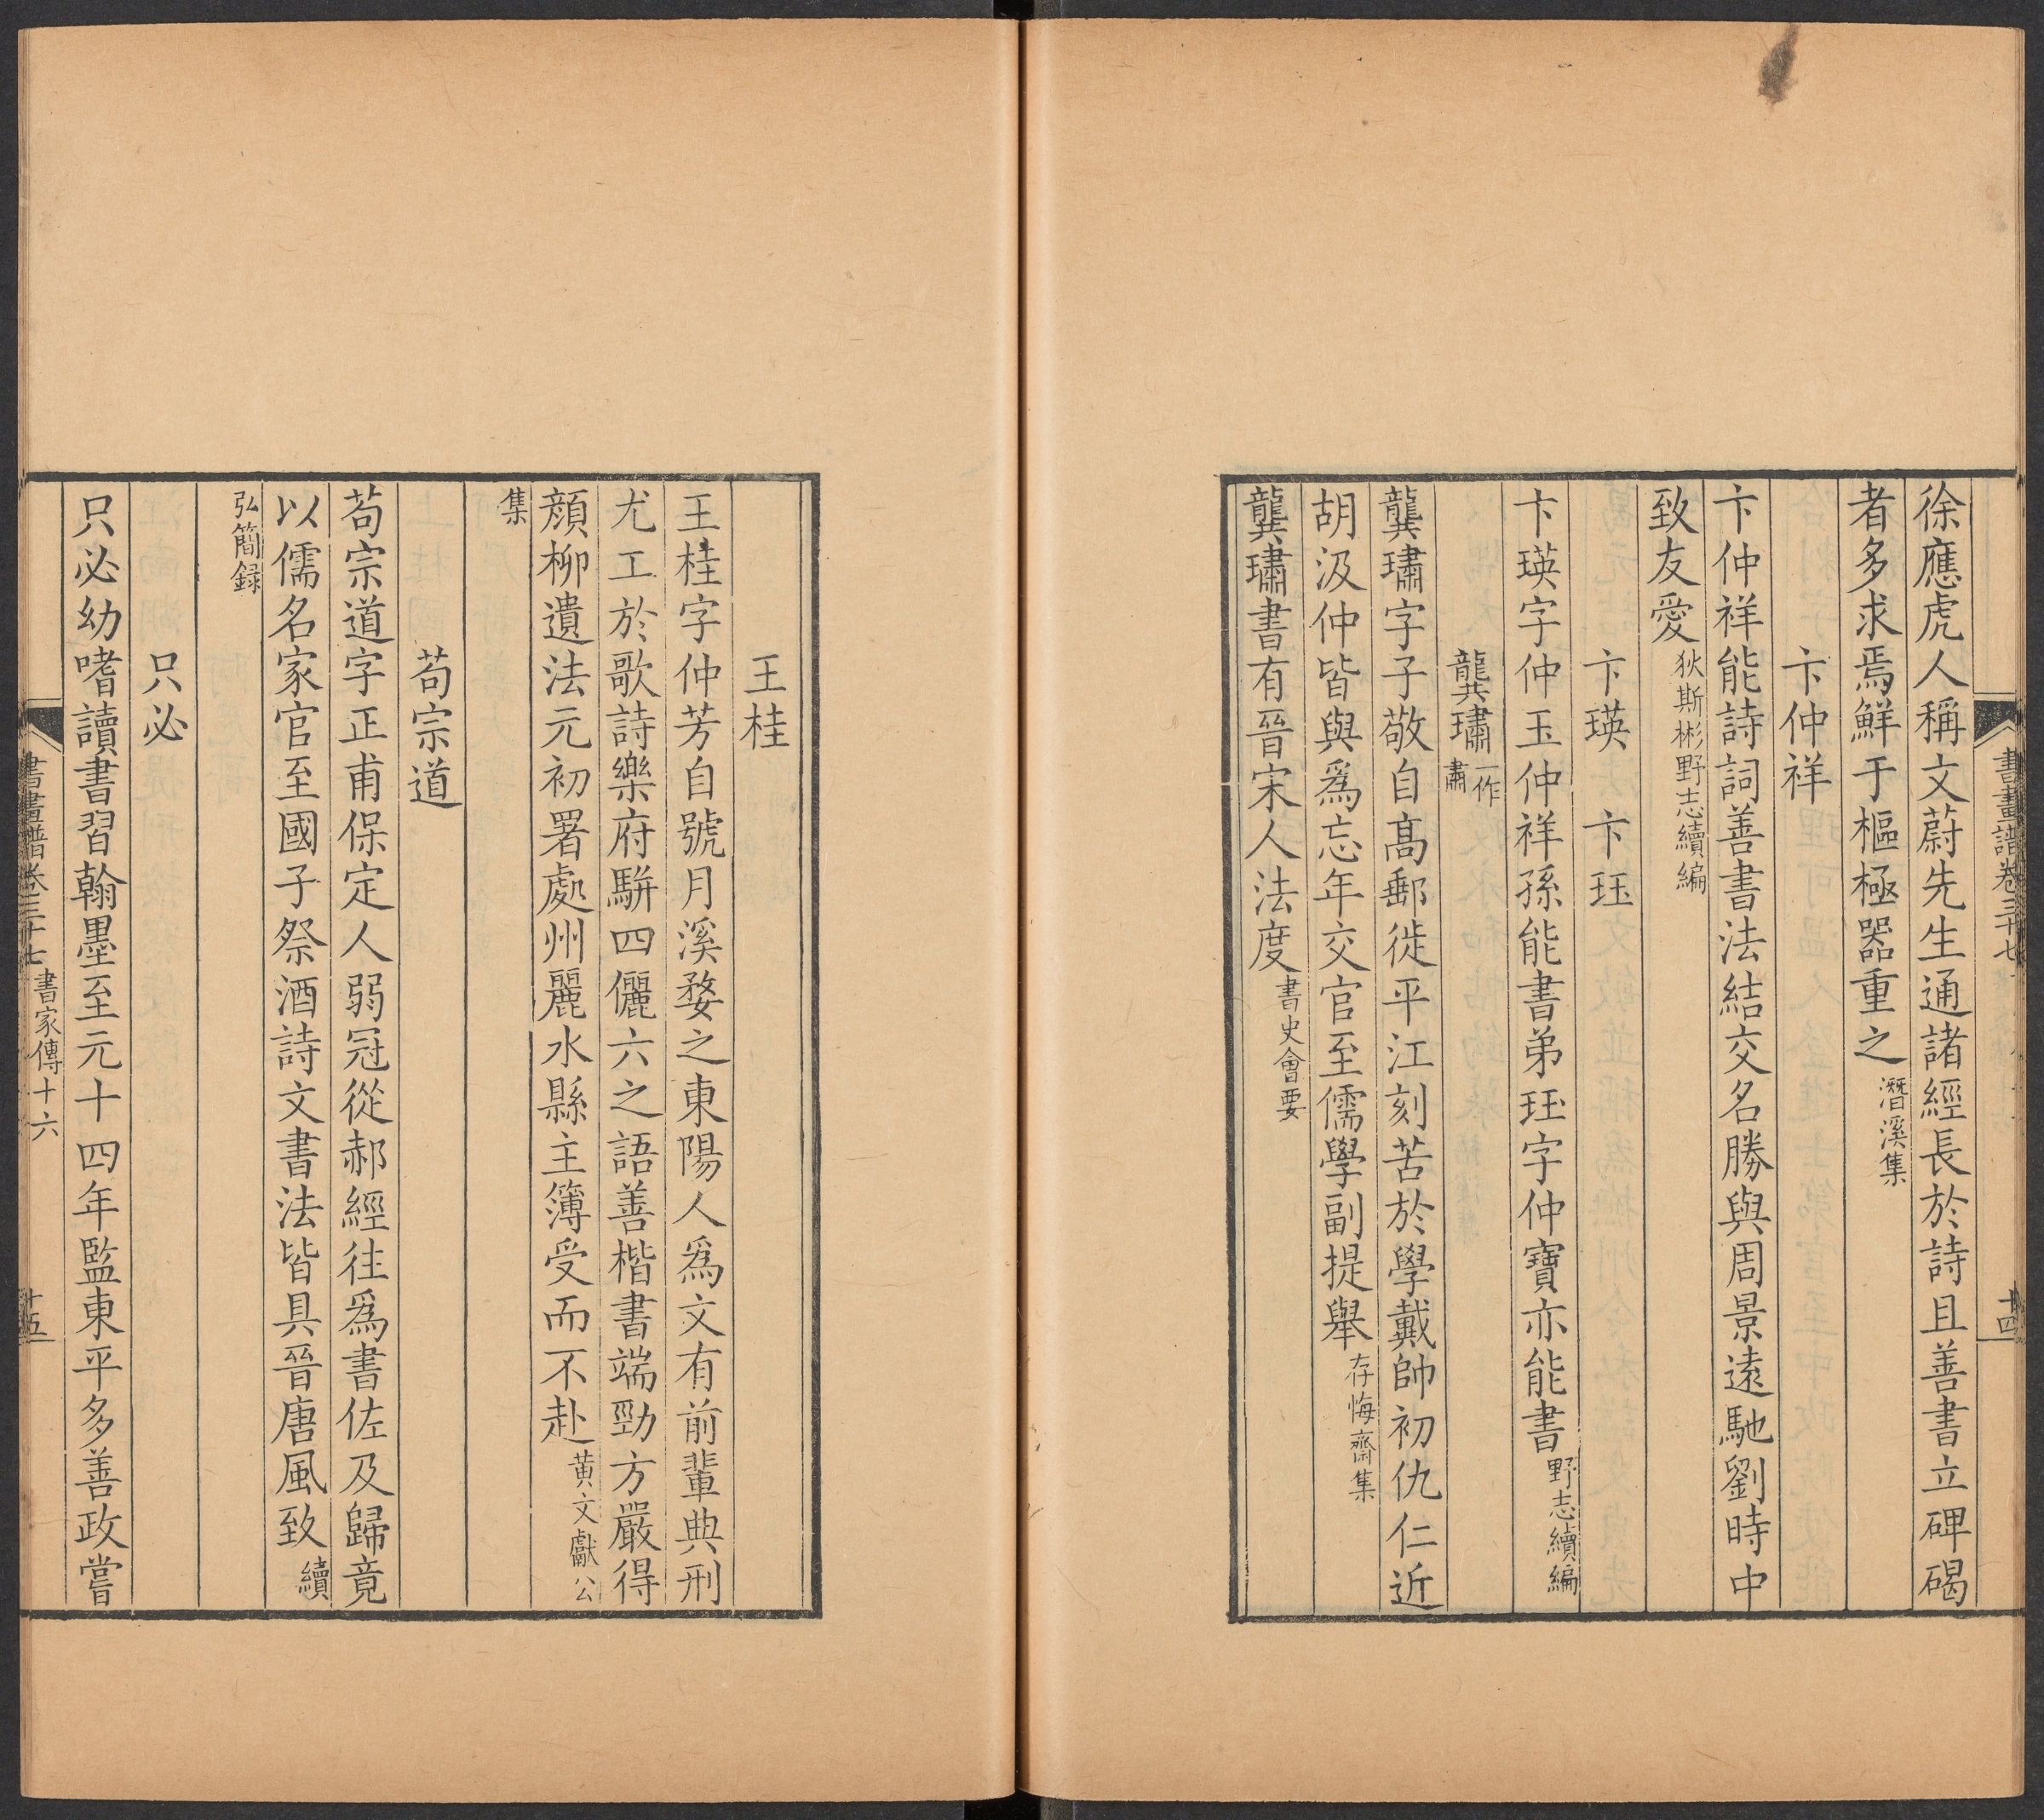 徐應虎人稱文蔚先生通諸經長於詩且善書立碑碣
者多求焉鮮于樞極器重之潛溪集
卞仲祥
卞仲祥能詩詞善書法結交名勝與周景遠馳劉時中
致友愛狄斯彬野志續編
卞瑛 卞珏
卞瑛字仲玉仲祥孫能書弟珏字仲寶亦能書野志續編
龔璛一作肅
龔璛字子敬自髙郵徙平江刻苦於學戴帥初仇仁近
胡汲仲皆與爲忘年交官至儒學副提舉存悔齋集
龔璛書有晉宋人法度書史會要
書畫譜卷三十七
十四
王桂
王桂字仲芳自號月溪婺之東陽人爲文有前輩典刑
尤工於歌詩樂府駢四儷六之語善楷書端勁方嚴得
顔柳遺法元初署處州麗水縣主簿受而不赴黄文獻公
集
苟宗道
苟宗道字正甫保定人弱冠從郝經往爲書佐及歸竟
以儒名家官至國子祭酒詩文書法皆具晉唐風致續
弘簡録
只必
只必幼嗜讀書習翰墨至元十四年監東平多善政嘗
書畫譜卷三十七 書家傳十六
十五